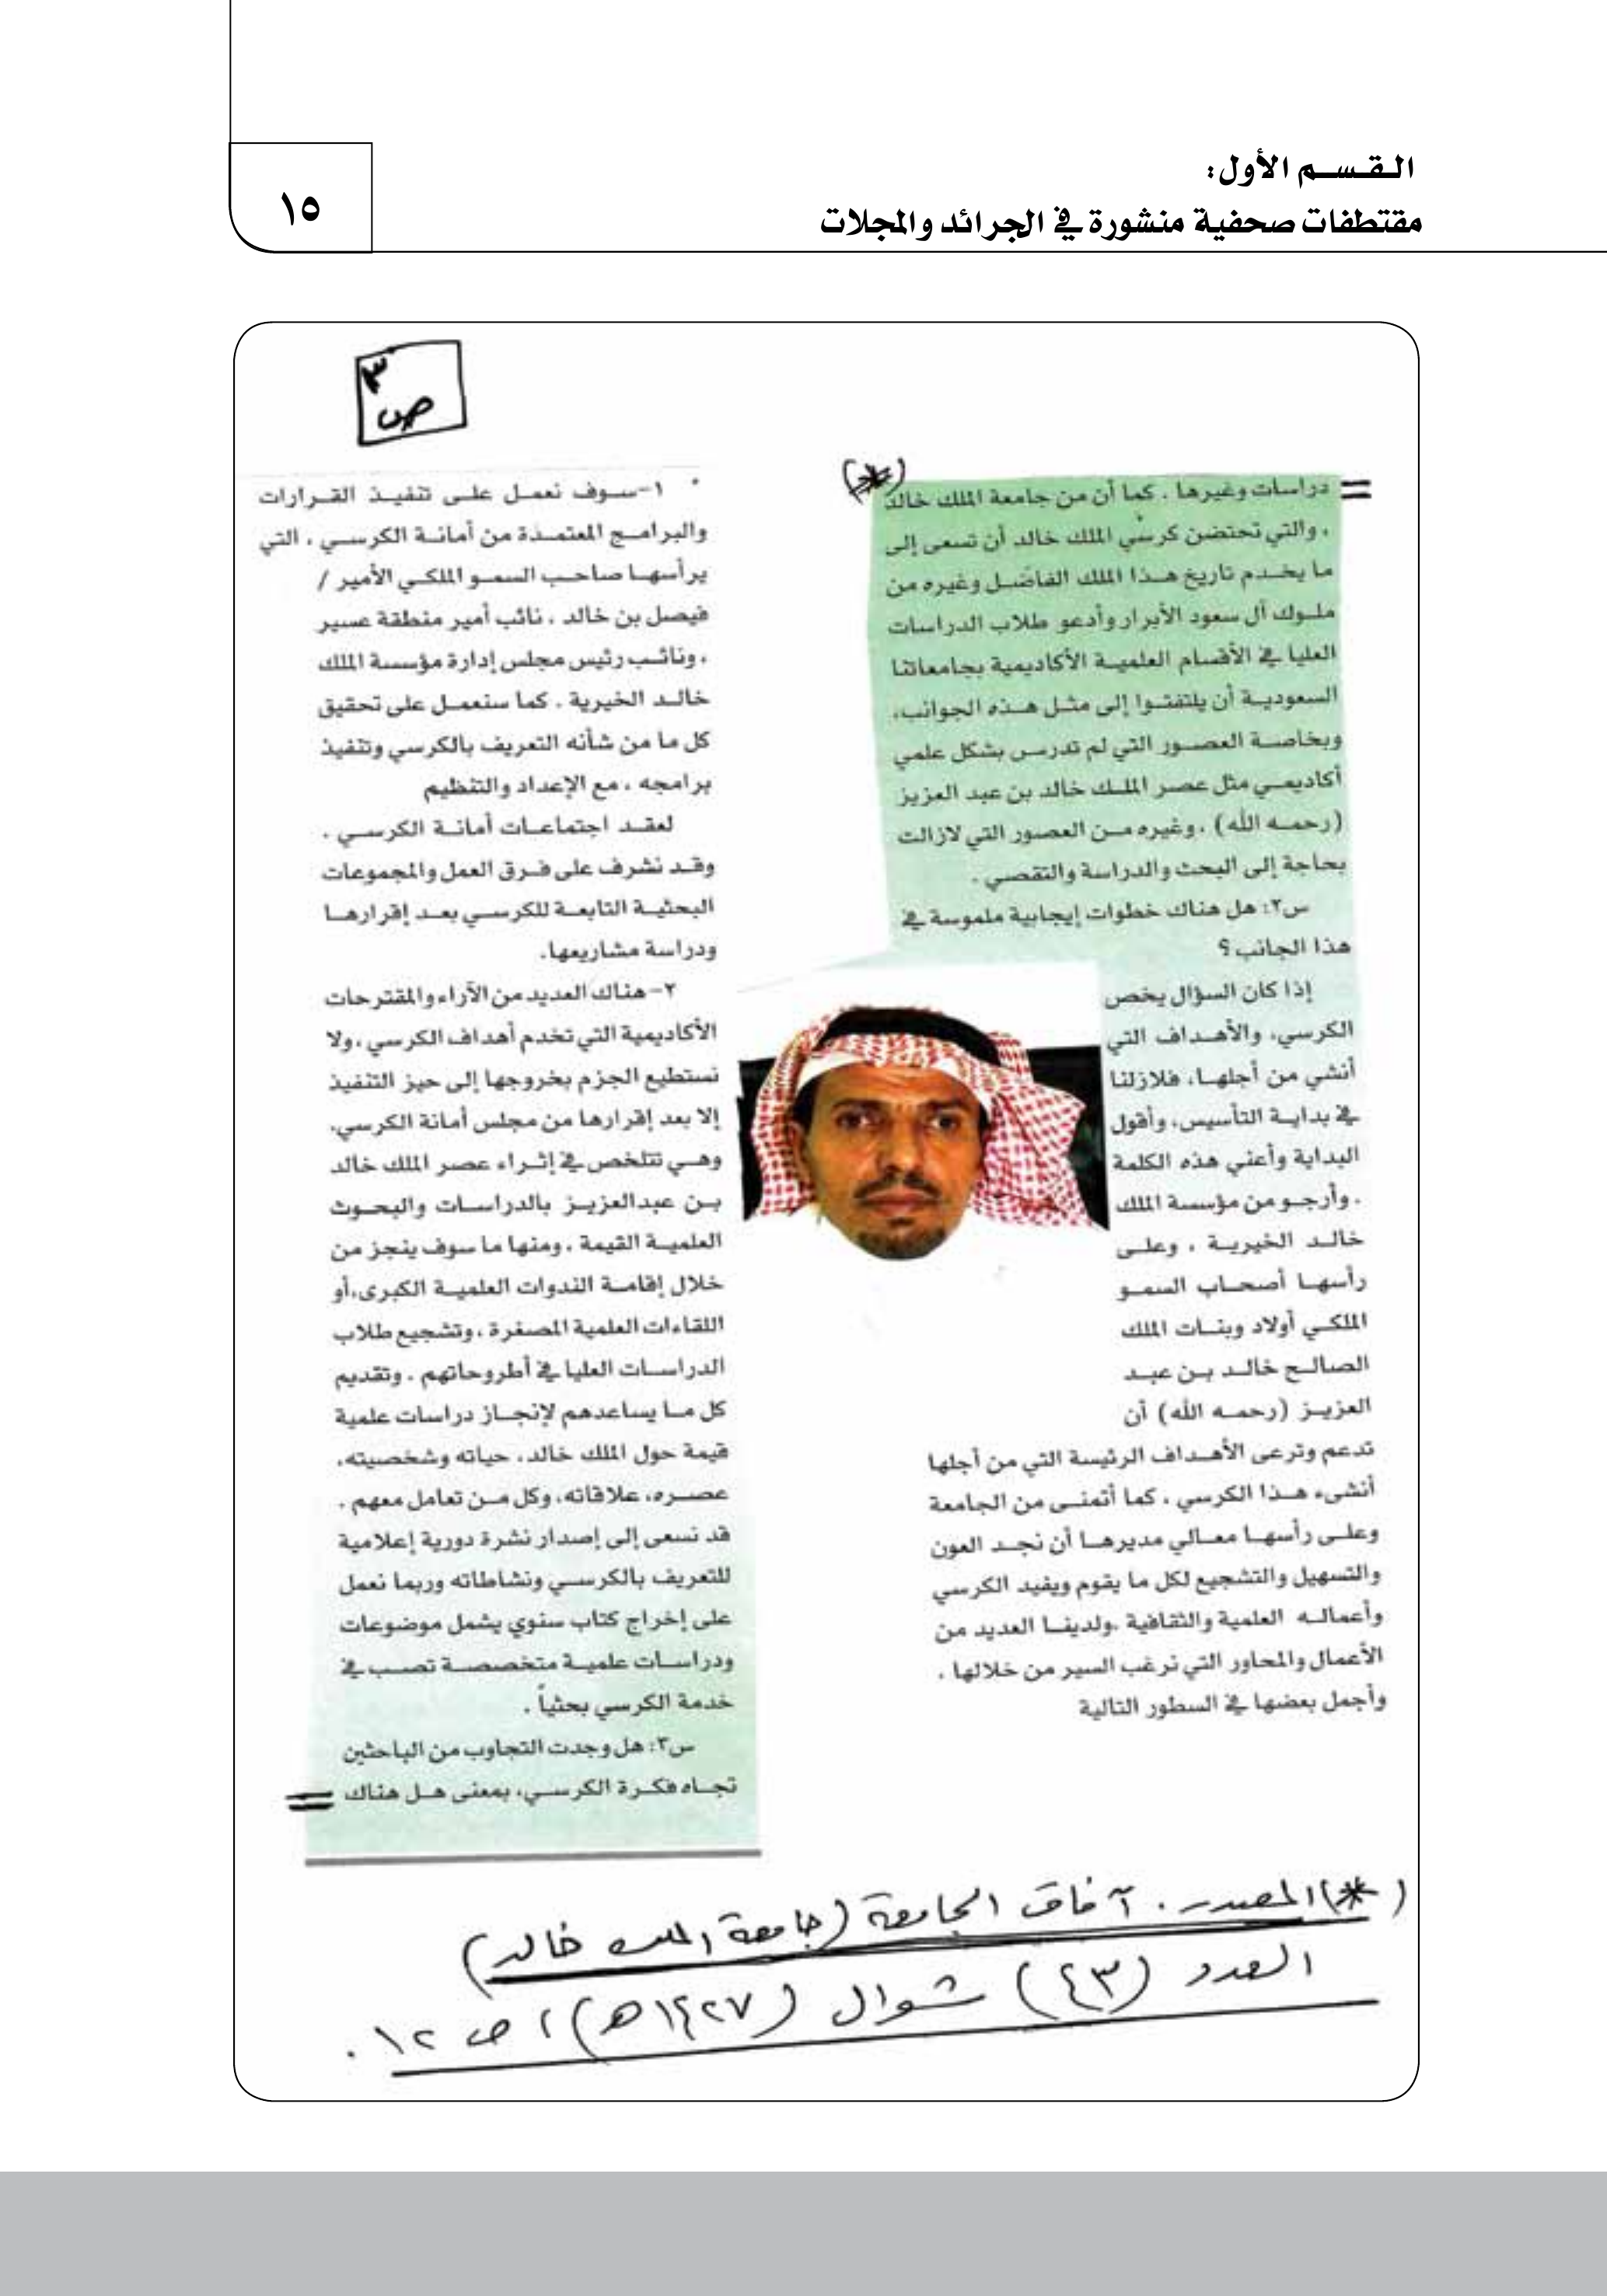 القسم الأول:
مقتطفات صحفية منشورة في الجرائد والمجلات
١٥
ص ٣
(*)
= دراسات وغيرها . كما أن من جامعة الملك خالد
، والتي تحتضن كرسي الملك خالد أن تسعى إلى
ما يخدم تاريخ هذا الملك الفاضل وغيره من
ملوك آل سعود الأبرار وأدعو طلاب الدراسات
العليا في الأقسام العلمية الأكاديمية بجامعاتنا
السعودية أن يلتفتوا إلى مثل هذه الجوانب،
وبخاصة العصور التي لم تدرس بشكل علمي
أكاديمي مثل عصر الملك خالد بن عبد العزيز
(رحمه الله) ، وغيره من العصور التي لازالت
بحاجة إلى البحث والدراسة والتقصي .
س٢: هل هناك خطوات إيجابية ملموسة في
هذا الجانب؟
إذا كان السؤال يخص
الكرسي، والأهداف التي
أنشي من أجلها، فلازلنا
في بداية التأسيس، وأقول
البداية وأعني هذه الكلمة
، وأرجو من مؤسسة الملك
خالد الخيرية ، وعلى
رأسها أصحاب السمو
الملكي أولاد وبنات الملك
الصالح خالد بن عبد
العزيز (رحمه الله) أن
تدعم وترعى الأهداف الرئيسة التي من أجلها
أنشىء هذا الكرسي ، كما أتمنى من الجامعة
وعلى رأسها معالي مديرها أن نجد العون
والتسهيل والتشجيع لكل ما يقوم ويفيد الكرسي
وأعماله العلمية والثقافية .ولدينا العديد من
الأعمال والمحاور التي نرغب السير من خلالها ،
وأجمل بعضها في السطور التالية
* ١-سوف نعمل على تنفيذ القرارات
والبرامج المعتمدة من أمانة الكرسي ، التي
يرأسها صاحب السمو الملكي الأمير /
فيصل بن خالد ، نائب أمير منطقة عسير
، ونائب رئيس مجلس إدارة مؤسسة الملك
خالد الخيرية . كما سنعمل على تحقيق
كل ما من شأنه التعريف بالكرسي وتنفيذ
برامجه ، مع الإعداد والتنظيم
لعقد اجتماعات أمانة الكرسي .
وقد نشرف على فرق العمل والمجموعات
البحثية التابعة للكرسي بعد إقرارها
ودراسة مشاريعها.
٢-هناك العديد من الآراء والمقترحات
الأكاديمية التي تخدم أهداف الكرسي ،ولا
نستطيع الجزم بخروجها إلى حيز التنفيذ
إلا بعد إقرارها من مجلس أمانة الكرسي،
وهي تتلخص في إثراء عصر الملك خالد
بن عبدالعزيز بالدراسات والبحوث
العلمية القيمة ، ومنها ما سوف ينجز من
خلال إقامة الندوات العلمية الكبرى،أو
اللقاءات العلمية المصغرة ،وتشجيع طلاب
الدراسات العليا في أطروحاتهم . وتقديم
كل ما يساعدهم لإنجاز دراسات علمية
قيمة حول الملك خالد، حياته وشخصيته،
عصره، علاقاته، وكل من تعامل معهم .
قد نسعى إلى إصدار نشرة دورية إعلامية
للتعريف بالكرسي ونشاطاته وربما نعمل
على إخراج كتاب سنوي يشمل موضوعات
ودراسات علمية متخصصة تصب في
خدمة الكرسي بحثياً .
س٣: هل وجدت التجاوب من الباحثين
تجاه فكرة الكرسي، بمعنى هل هناك =
(*) المصدر . آفاق الجامعة (جامعة الملك خالد)
العدد (٤٣) شوال (١٤٢٧هـ) ، ص ١٢ .